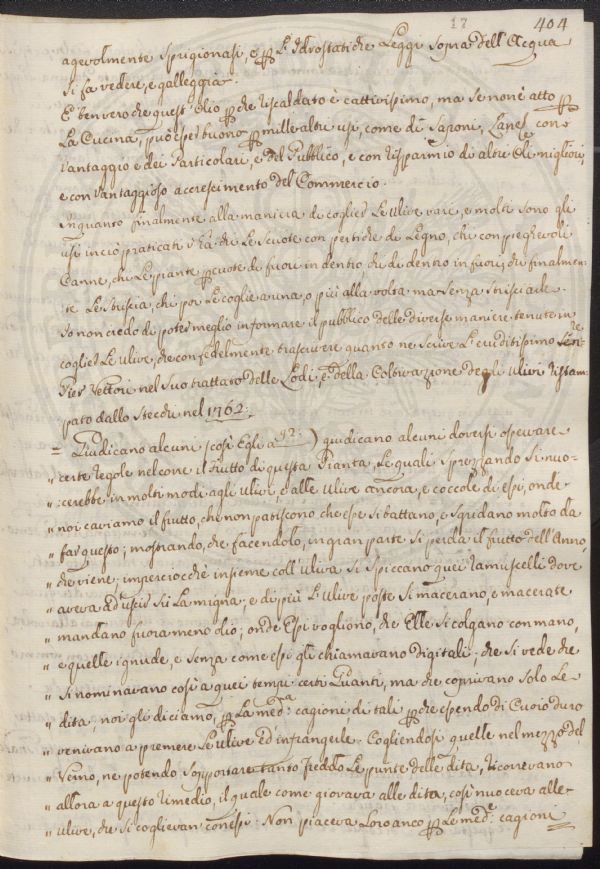 18 404
agevolmente sprigionasi, e per l'Idrostatiche Leggi sopra dell'Acqua
si fa vedere, e galleggia.
E' ben vero che quest'olio perche riscaldato è cattivissimo, ma se non è atto per
la Cucina, può esser buono per mille altri usi, come di Saponi, Lane &c con
vantaggio e dei Particolari, e del Pubblico, e con risparmio di altri Oli migliori,
e con vantaggioso accrescimento del Commercio.
Inquanto finalmente alla maniera di coglier le ulive vari, e molti sono gli
usi in ciò praticati v'ha chi le scuote con pertiche di Legno, chi con pieghevoli
Canne, chi le piante percuote di fuori in dentro chi di dentro in fuori, chi finalmen-
te le struscia, chi poi le coglie a una, o più alla volta ma senza strisciarle.
Io non credo di poter meglio informare il pubblico delle diverse maniere tenute in
coglier le ulive, che con fedelmente trascrivere quanto ne scrive l'eruditissimo Sen.re
Pier Vettori nel suo trattato delle Lodi, e della Coltivazione degli Ulivi ristam-
pato dallo Stecchi nel 1762:
= Giudicano alcuni (così Egli a 92:) giudicano alcuni doversi osservare
" certe regole nel corre il frutto di questa Pianta, le quali sprezzando si nuo-
" cerebbe in molti modi agli Ulivi, e alle Ulive ancora, e coccole di essi, onde
" noi caviamo il frutto, che non patiscono che esse si battano, e sgridano molto da
" far questo; mostrando, che facendolo, in gran parte si perda il frutto dell'Anno,
" che viene; imperciocchè insieme coll'uliva si spiccano quei ramuscelli dove
" aveva ad uscir su la migna; e di più l'ulive poste si macerano, e macerate
" mandano fuora meno olio; onde Essi vogliono, che Elle si colgano con mano,
" e quelle ignude, e senza come essi gli chiamavano Digitali; che si vede che
" si nominavano così a quei tempi certi Guanti, ma che coprivano solo Le
" dita, noi gli diciamo, per la med.a cagione, ditali, perche essendo di Cuoio duro
" venivano a premere le ulive ed infrangerle. Cogliendosi quelle nel mezzo del
" Verno, ne potendo sopportare tanto freddo le punte delle dita, ricorrevano
" allora a questo rimedio, il quale come giovava alle dita, così nuoceva alle
" ulive, che si coglievan con essi. Non piaceva loro anco per le med.e cagioni